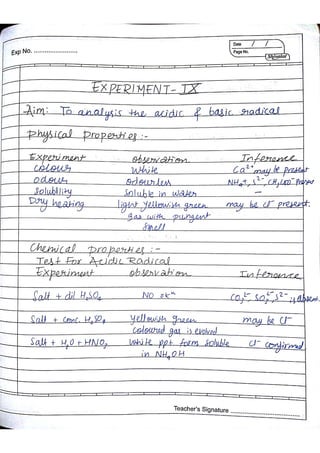 Exp No. ........................
Date / /
Page No.
EXPERIMENT-IX
Aim: To analysis the acidic & basic radical
Physical Properties:-
Experiment observation Inference
colour White Ca2+ may be present
odour odourless NH4+, S2-, CH3COO-
Solubility soluble in water -
Dry heating light yellowish green may be Cl- present.
gas with pungent
smell
Chemical properties:-
Test For Acidic Radical
Experiment observation Inference
Salt + dil H2SO4 NO rxn CO32- SO32-, S2- is absent.
Salt + conc. H2SO4 Yellowish green may be Cl-
coloured gas is evolved
Salt + H2O + HNO3 white ppt form soluble Cl- confirmed
in NH4OH
Teacher's Signature ........................